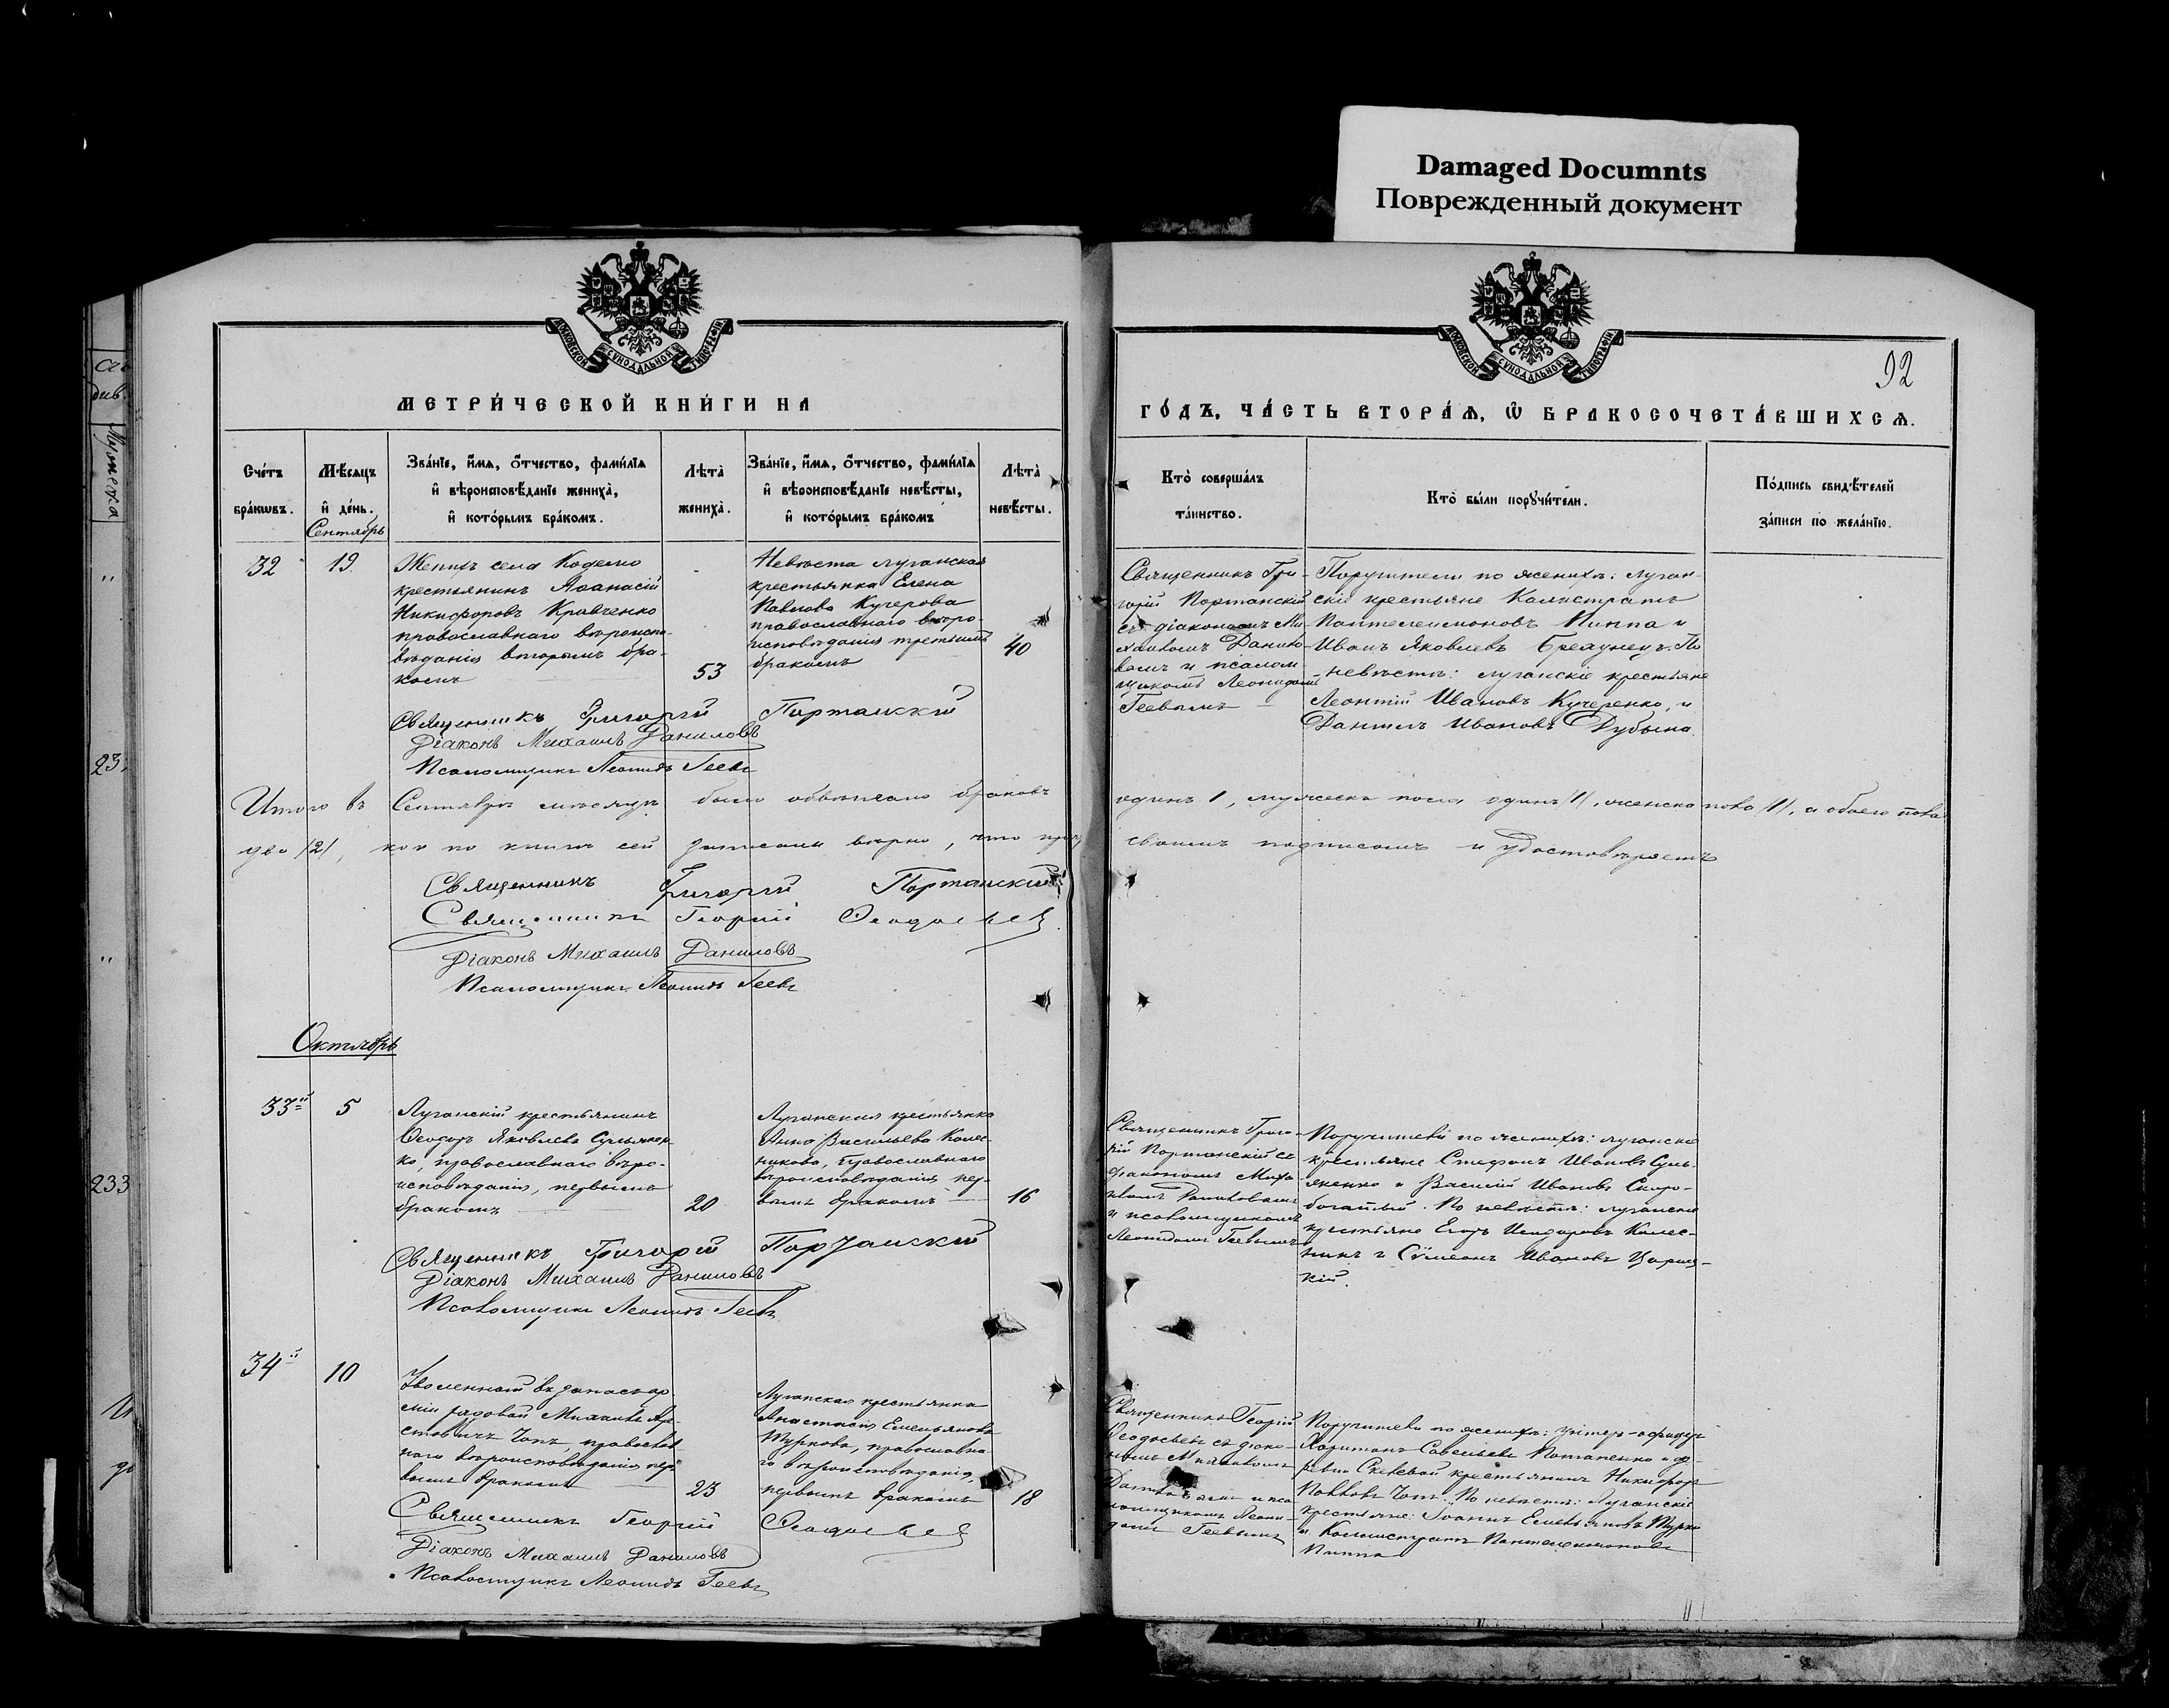 Damaged Documnts
Поврежденный документ
МОСКОВСКОЙ СУНОДАЛЬНОЙ ТИПОГРАФІИ
МОСКОВСКОЙ СУНОДАЛЬНОЙ ТИПОГРАФІИ
92
МЕТРИ́ЧЕСКОЙ КНИ́ГИ НА
ГО́ДЪ, ЧА́СТЬ ВТОРА́Ѧ, Ѽ БРАКОСОЧЕТА́ВШИХСѦ.
Сче́тъ бра́кѡвъ.
Мѣ́сяцъ и҆ де́нь.
Зва́нїе, и҆́мѧ, ѻ҆́тчество, фами́лїѧ
и҆ вѣроисповѣ́данїе жениха̀,
и҆ кото́рымъ бра́комъ.
Лѣта̀ жениха̀.
Зва́нїе, и҆́мѧ, ѻ҆́тчество, фами́лїѧ
и҆ вѣроисповѣ́данїе невѣ́сты,
и҆ кото́рымъ бра́комъ
Лѣта̀ невѣ́сты.
Кто̀ соверша́лъ та́инство.
Кто̀ бы́ли порꙋчи́тели.
По́дпись свидѣ́телей за́писи по жела́нїю.
Сентябрь
32
19
Женихъ села Кодемо
крестьянинъ Аѳанасій
Никифоровъ Кравченко
православнаго вѣроиспо-
вѣданія вторымъ бра-
комъ
53
Невѣста луганская
крестьянка Елена
Павлова Кучерова
православнаго вѣро-
исповѣданія третьимъ
бракомъ
40
Священникъ Гри-
горій Портанскій
съ діакономъ Ми-
хаиломъ Данило-
вымъ и псалом-
щикомъ Леонидомъ
Геевымъ
Поручители по женихѣ: луган-
скіе крестьяне Калистратъ
Пантелеимоновъ Пиппа и
Иванъ Яковлевъ По
невѣстѣ: луганскіе крестьяне
Леонтій Ивановъ Кучеренко, и
Даніилъ Ивановъ Дубына.
Священникъ Григорій Портанскій
Діаконъ Михаилъ Даниловъ
Псаломщикъ Леонидъ Геевъ
Итого въ Сентябрѣ мѣсяцѣ было обвѣнчано браковъ один 1, мужеска пола одинъ /1/, женска пола /1/, а обоего пола
два /2/, кои по книгѣ сей записаны вѣрно, что своимъ подписомъ и удостовѣряетъ
Священникъ Григорій Портанскій
Священникъ Георгій Ѳеодосьевъ
Діаконъ Михаилъ Даниловъ
Псаломщикъ Леонидъ Геевъ
Октябрь
33й
5
Луганскій крестьянинъ
Ѳеодоръ Яковлевъ Сульжен-
ко, православнаго вѣро-
исповѣданія, первымъ
бракомъ
20
Луганская крестьянка
Анна Васильева Колес-
никова, православнаго
вѣроисповѣданія пер-
вымъ бракомъ
16
Священникъ Григо-
рій Портанскій съ
діакономъ Миха-
иломъ Даниловымъ
и псаломщикомъ
Леонидомъ Геевымъ
Поручители по женихѣ: луганскіе
крестьяне Стефанъ Ивановъ Суль-
женко и Василій Ивановъ Скоро-
богатый. По невѣстѣ: луганскіе
крестьяне Егоръ Исидоровъ Колес-
никъ и Сѵмеонъ Ивановъ Кариц-
кій.
Священникъ Григорій Портанскій
Діаконъ Михаилъ Даниловъ
Псаломщикъ Леонидъ Геевъ
34й
10
Уволенный въ запасъ ар-
міи рядовой Михаилъ
Чопъ, православ-
наго вѣроисповѣданія пер-
вымъ бракомъ
23
Луганская крестьянка
Анастасія Емельянова
Туркова, православна-
го вѣроисповѣданія,
первымъ бракомъ
18
Священникъ Георгій
Ѳеодосьевъ съ діако-
номъ Михаиломъ
Даниловымъ и пса-
ломщикомъ Леони-
домъ Геевымъ
Поручители по женихѣ: унтеръ-офицеръ
Харитонъ Савельевъ Потапенко и де-
ревни крестьянинъ Никифоръ
Павловъ Чопъ. По невѣстѣ: Луганскіе
крестьяне: Іоаннъ Емельяновъ Турко
и Калистратъ Пантелеимоновъ
Пиппа
Священникъ Георгій Ѳеодосьевъ
Діаконъ Михаилъ Даниловъ
Псаломщикъ Леонидъ Геевъ
233